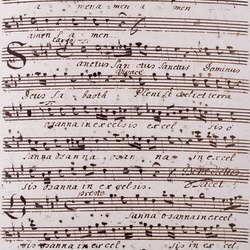 a mena men a men
amen a men.
Largo
Sanctus San ctus Sanctus Dominus
Vivace
Deus Sa baoth Pleni st coeli et terra
osanna in excelsis excel sis o
sanna osanna osan na in excel
sis osanna in excelsis. Benedictus Tacet
presto
osanna in excel